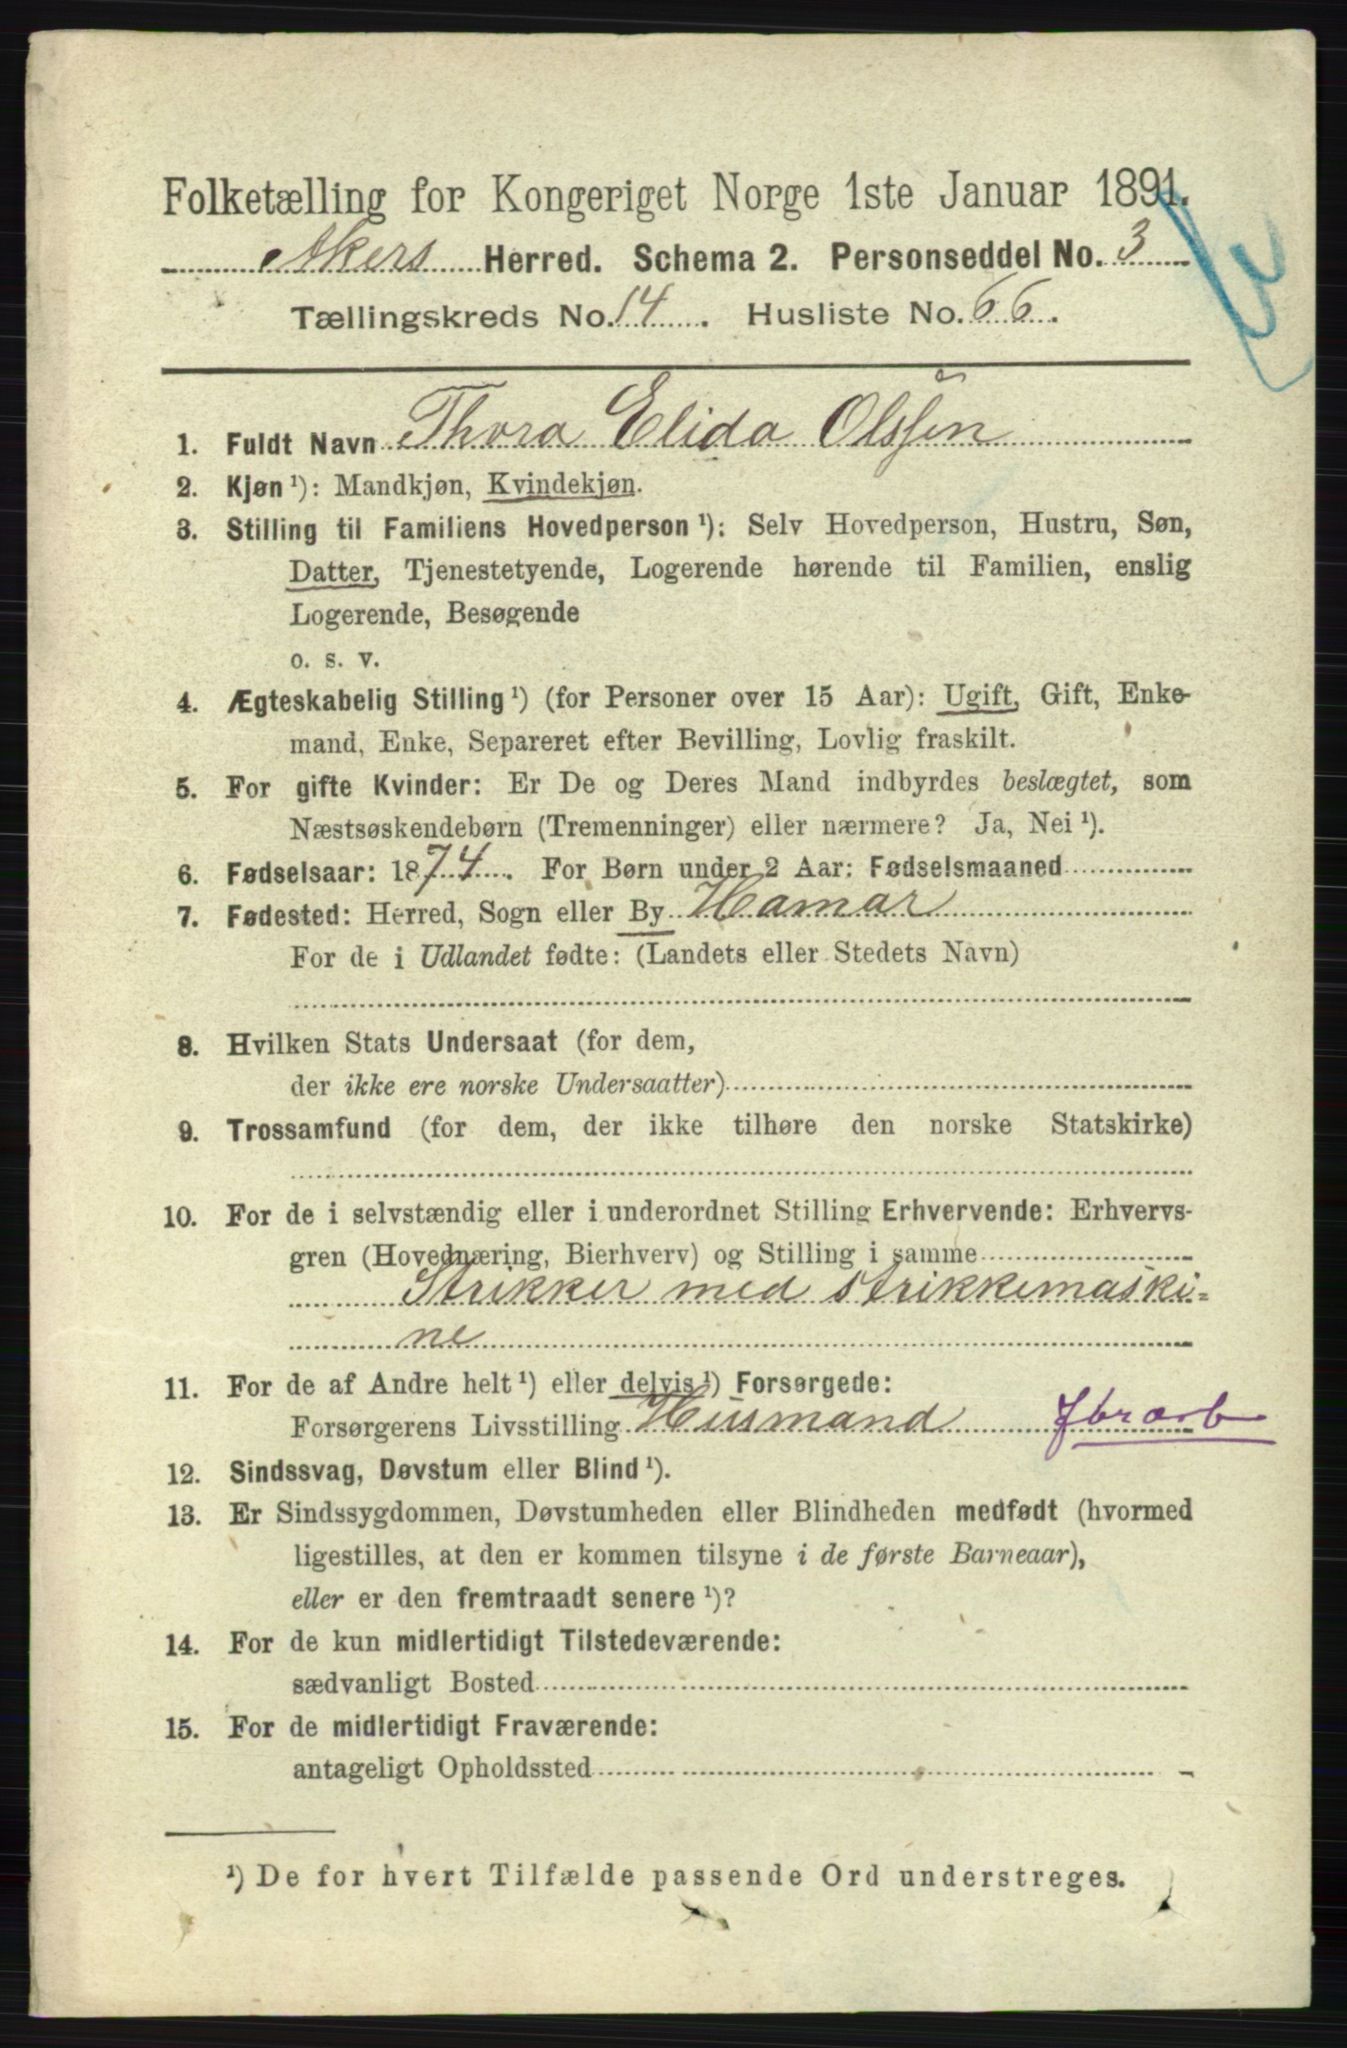 Folketælling for Kongeriget Norge 1ste Januar 1891.
Akers Herred. Schema 2. Personseddel No. 3
Tællingskreds No. 14. Husliste No. 66.
1. Fuldt Navn Thora Elida Olssen
2. Kjøn ¹): Mandkjøn, Kvindekjøn.
3. Stilling til Familiens Hovedperson ¹): Selv Hovedperson, Hustru, Søn,
Datter, Tjenestetyende, Logerende hørende til Familien, enslig
Logerende, Besøgende
o. s. v.
4. Ægteskabelig Stilling ¹) (for Personer over 15 Aar): Ugift, Gift, Enke-
mand, Enke, Separeret efter Bevilling, Lovlig fraskilt.
5. For gifte Kvinder: Er De og Deres Mand indbyrdes beslægtet, som
Næstsøskendebørn (Tremenninger) eller nærmere? Ja, Nei ¹).
6. Fødselsaar: 1874. For Børn under 2 Aar: Fødselsmaaned
7. Fødested: Herred, Sogn eller By Hamar
For de i Udlandet fødte: (Landets eller Stedets Navn)
8. Hvilken Stats Undersaat (for dem,
der ikke ere norske Undersaatter)
9. Trossamfund (for dem, der ikke tilhøre den norske Statskirke)
10. For de i selvstændig eller i underordnet Stilling Erhvervende: Erhvervs-
gren (Hovednæring, Bierhverv) og Stilling i samme
Strikker med strikkemaski=
ne
11. For de af Andre helt ¹) eller delvis ¹) Forsørgede:
Forsørgerens Livsstilling Husmand Jbrarb
12. Sindssvag, Døvstum eller Blind ¹).
13. Er Sindssygdommen, Døvstumheden eller Blindheden medfødt (hvormed
ligestilles, at den er kommen tilsyne i de første Barneaar),
eller er den fremtraadt senere ¹)?
14. For de kun midlertidigt Tilstedeværende:
sædvanligt Bosted
15. For de midlertidigt Fraværende:
antageligt Opholdssted
¹) De for hvert Tilfælde passende Ord understreges.